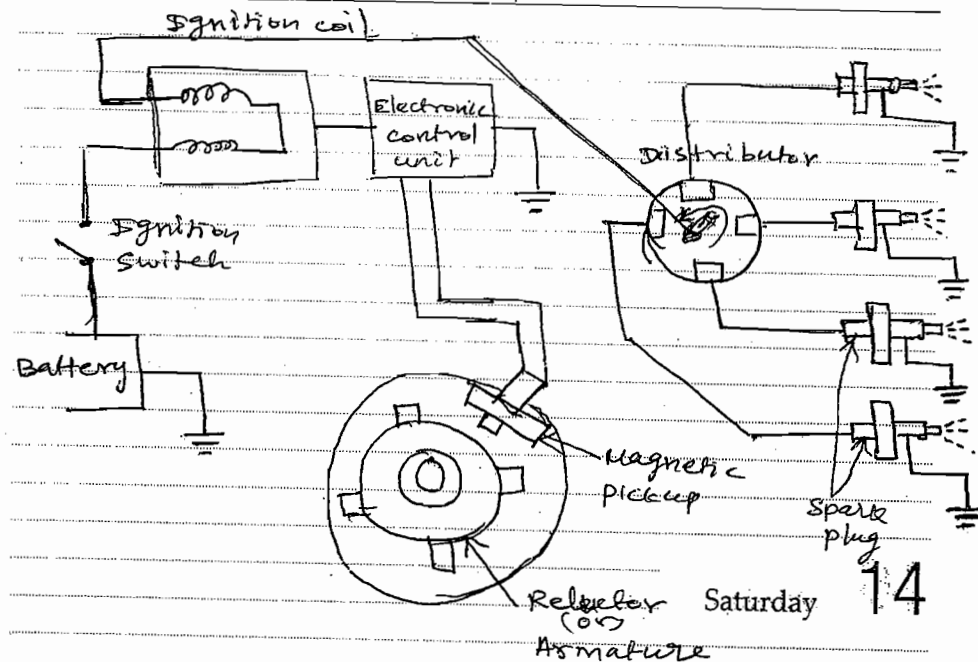 Ignition coil
Electronic
control
unit
Distributor
Ignition
Switch
Battery
Magnetic
pickup
Spark
plug
Reluctor
(or)
Armature
Saturday 14